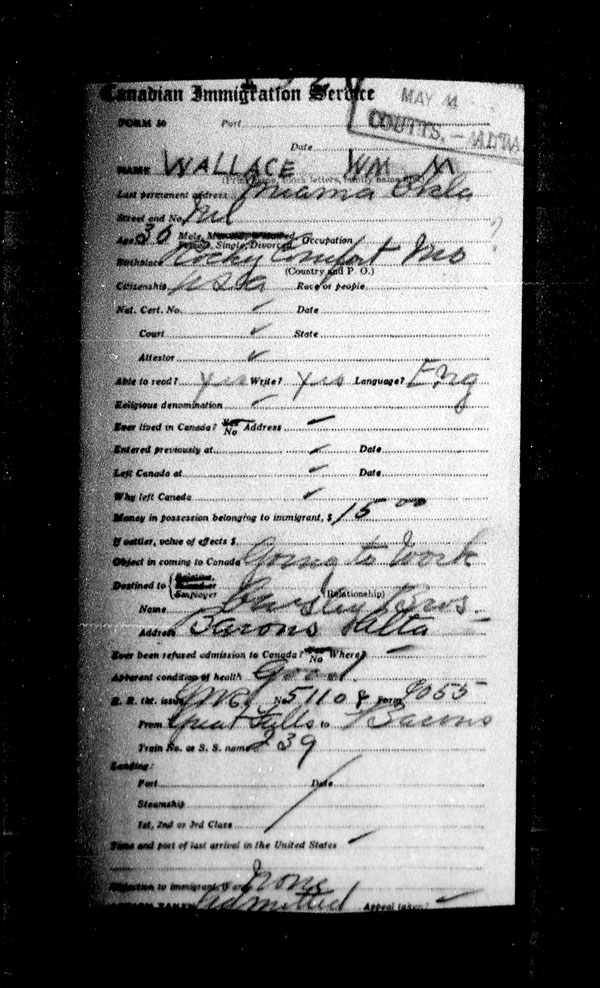 Canadian Immigration Service
MAY 11
COUTTS. — ALTA
FORM 30 Port
Date
NAME WALLACE WM M
Last permanent address Miama Okla
Street and No.
Age 30 Male, Married, Widowed ?
Female, Single, Divorced, Occupation
Birthplace Rocky Comfort Mo
(Country and P. O.)
Citizenship USA Race or people
Nat. Cert. No. ✓ Date
Court ✓ State
Attestor ✓
Able to read? yes Write? yes Language? Eng
Religious denomination ✓
Ever lived in Canada? Yes No Address ✓
Entered previously at ✓ Date
Left Canada at ✓ Date
Why left Canada ✓
Money in possession belonging to immigrant, $ 15 00
If settler, value of effects $
Object in coming to Canada Going to Work
Destined to { Relative, Friend or Employer
Name Bros. (Relationship)
Address Barons Alta
Ever been refused admission to Canada? Yes No Where?
Apparent condition of health Good
R. R. tkt. issued No 5110 & Form 9055
From Great Falls to Barons
Train No. or S. S. name 239
Landing:
Port Date
Steamship
1st, 2nd or 3rd Class
Time and port of last arrival in the United States
Objection to immigrant, if any None
ACTION TAKEN Admitted Appeal taken? ✓